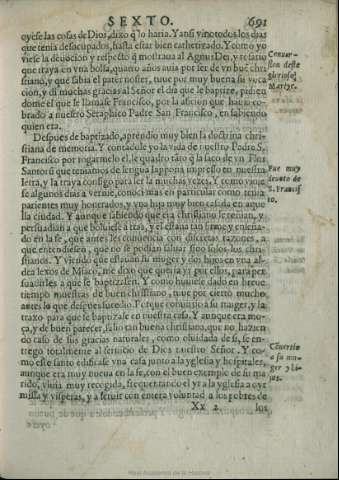 SEXTO. 691
oyese las cosas de Dios, dixo q̃ lo haria. Y ansi vino todos los dias
que tenia desocupados, hasta estar bien cathetizado. Y como yo
viese la deuocion y respecto q̃ mostraua al Agnus Dei, y rosario
que traya en vna bolsa, quatro años auia por ser de vn buẽ chri
stiano, y que sabia el pater noster, tuue por muy buena su voca
cion, y di muchas gracias al Señor el dia que le baptize, pidien
dome el que se llamase Francisco, por la aficion que hauia co-
brado a nuestro Seraphico Padre San Francisco, en sabiendo
quien era.
Despues de baptizado, aprendio muy bien la doctrina chri-
stiana de memoria. Y contadole yo la vida de nuestro Padre S.
Francisco por rogarmelo el, le quadro tãto q̃ la saco de vn Flos
Santorũ que teniamos de lengua Iappona impresso en nuestra
letra, y la traya consigo para leerla muchas vezes. Y como vinie
se algunos dias a verme, conoci mas en particular como tenia
parientes muy honerados, y vna hija muy bien casada en aque
lla ciudad. Y aunque sabiendo que era christiano le reñian, y
persuadian a que boluiese a tras, y el estaua tan firme y enseña-
do en la fe, que antes les conuencia con discretas razones, a
que entendiesen, que no se podian saluar sino todos los chri-
stianos. Y viendo que estauan su muger y dos hijos en vna al-
dea lexos de Miaco, me dixo que queria yr por ellos, para per
suadirles a que se baptizasen. Y como huuiese dado en breue
tiempo muestras de buen christiano, tuue por cierto mucho
antes lo que despues sucedio. Porque conuirtio a su muger, y la
traxo para que se baptizase en nuestra casa. Y aunque era mo-
ça, y de buen parecer, salio tan buena christiana, que no hazien
do caso de sus gracias naturales, como oluidada de si, se en-
trego totalmente al seruicio de Dios nuestro Señor. Y co-
mo este santo edificase vna casa junto a la yglesia y hospitales,
aunque era muy nueua en la fe, con el buen exemplo de su ma-
rido, viuia muy recogida, frequentando el yr a la yglesia a oyr
missa y visperas, y a seruir con entera voluntad a los pobres de
Xx 2 los
Conuer-
sion deste
glorioso
Martyr.
Fue muy
deuoto de
S. Francis
co.
Cõuertio
a su mu-
ger y hi-
jos.
Real Academia de la Historia